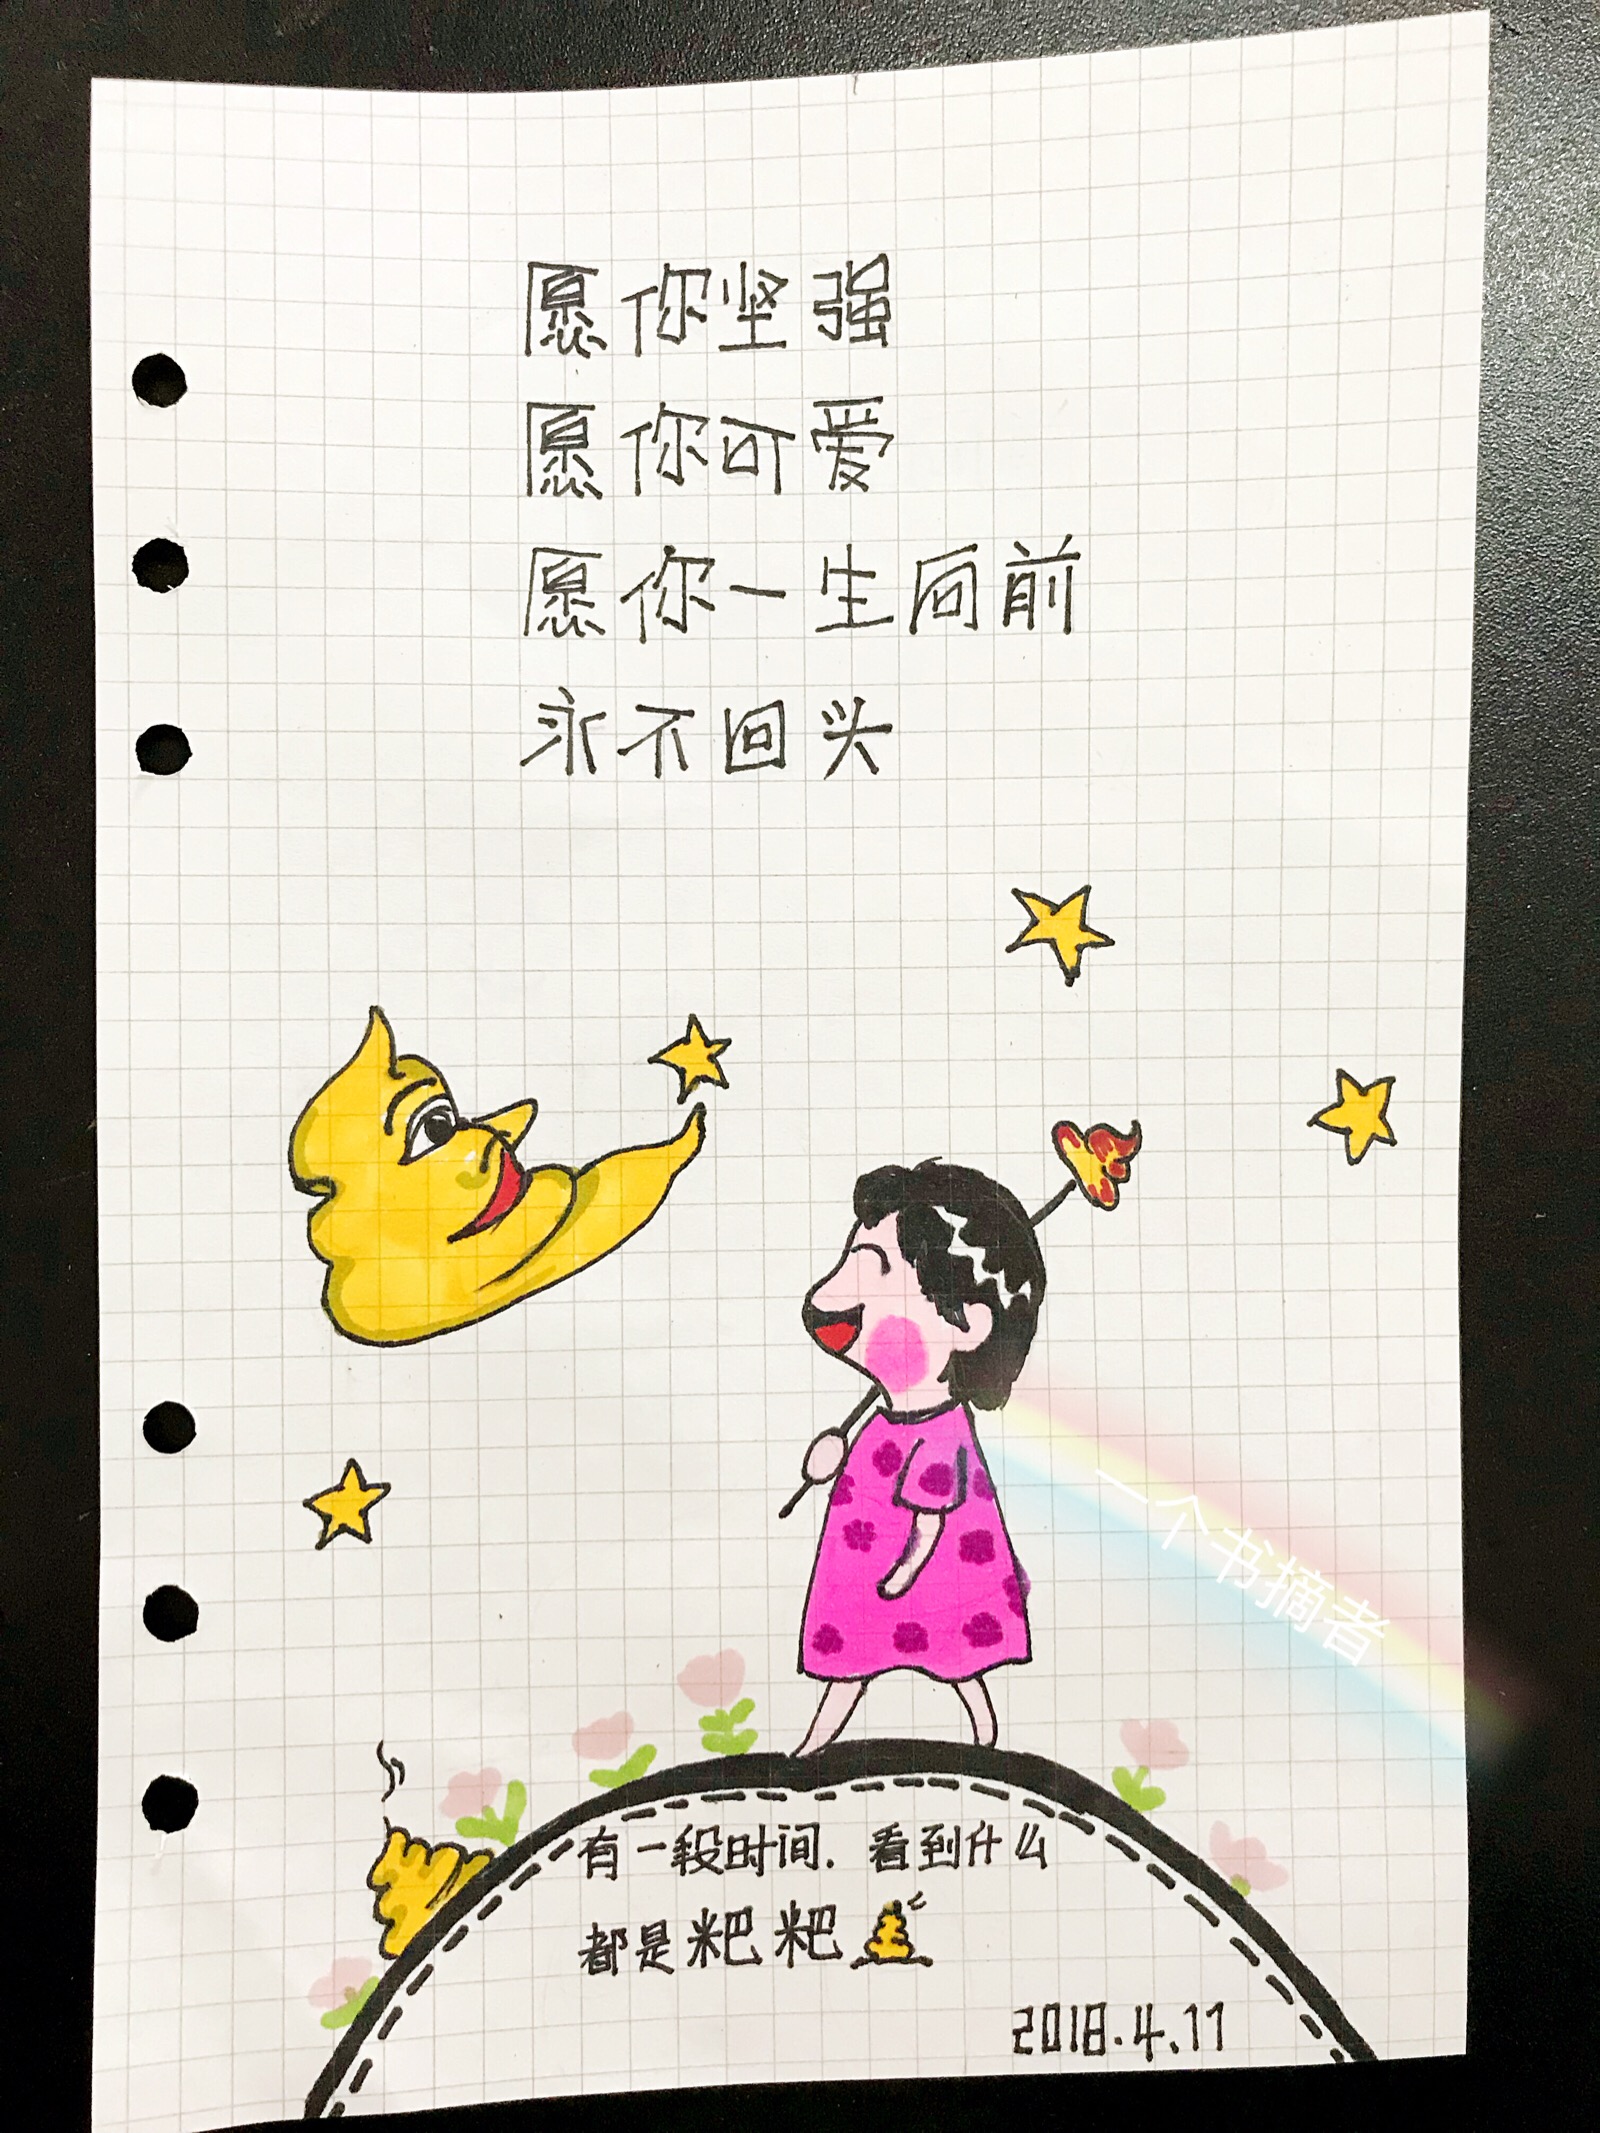 愿你坚强
愿你可爱
愿你一生向前
永不回头
一个书摘者
有一段时间.看到什么
都是粑粑
2018.4.11